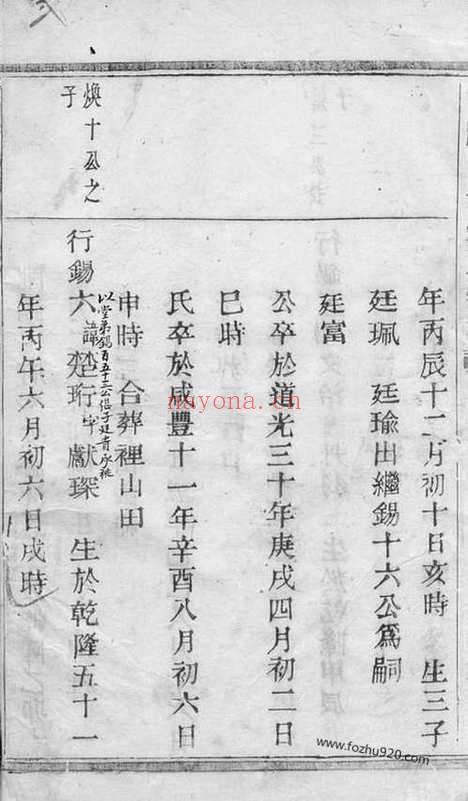 年丙辰十二月初十日亥時 生三子
廷珮 廷瑜出繼錫十六公爲嗣
廷富
公卒於道光三十年庚戌四月初二日
巳時
氏卒於咸豐十一年辛酉八月初六日
申時 合葬裡山田
煥十公之
子
行錫六 諱楚珩字獻琛 生於乾隆五十一
以堂弟錫百五十三公
承祧
年丙午六月初六日戌時
nayona.cn
www.fozhu920.com